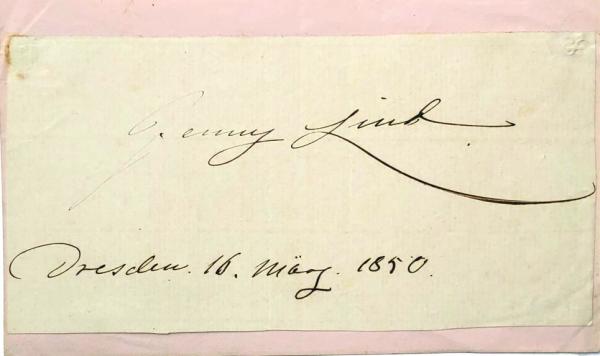 Jenny Lind
Dresden. 16. März. 1850.